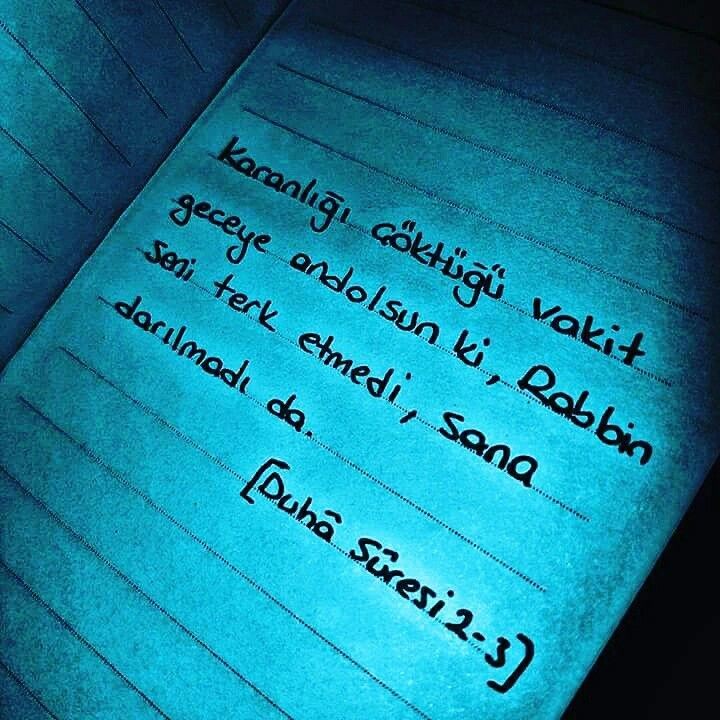 Karanlığı çöktüğü vakit
geceye andolsun ki, Rabbin
seni terk etmedi, sana
darılmadı da.
[Duhâ Sûresi 2-3]